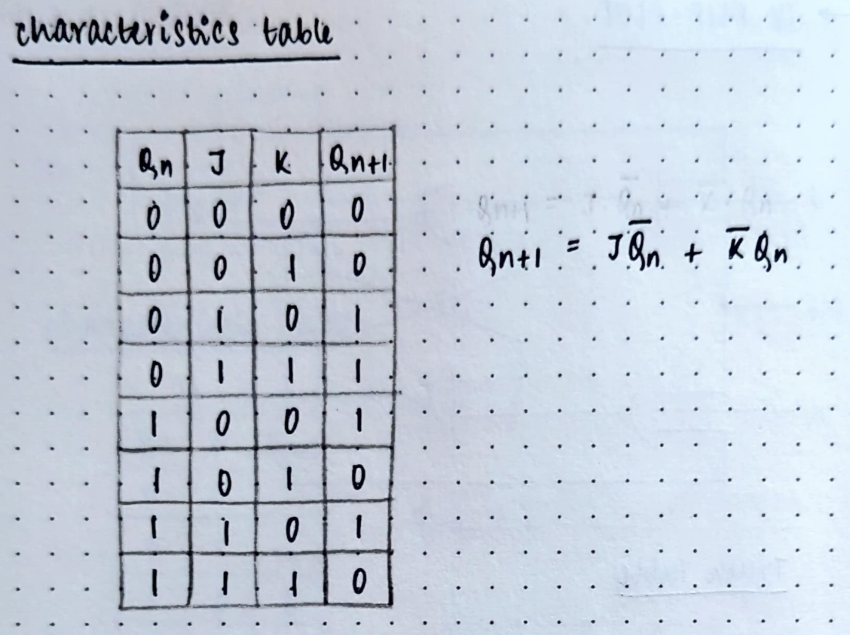 characteristics table
Qn J K Qn+1
0 0 0 0
0 0 1 0
0 1 0 1
0 1 1 1
1 0 0 1
1 0 1 0
1 1 0 1
1 1 1 0
Qn+1 = JQ̅n + K̅Qn